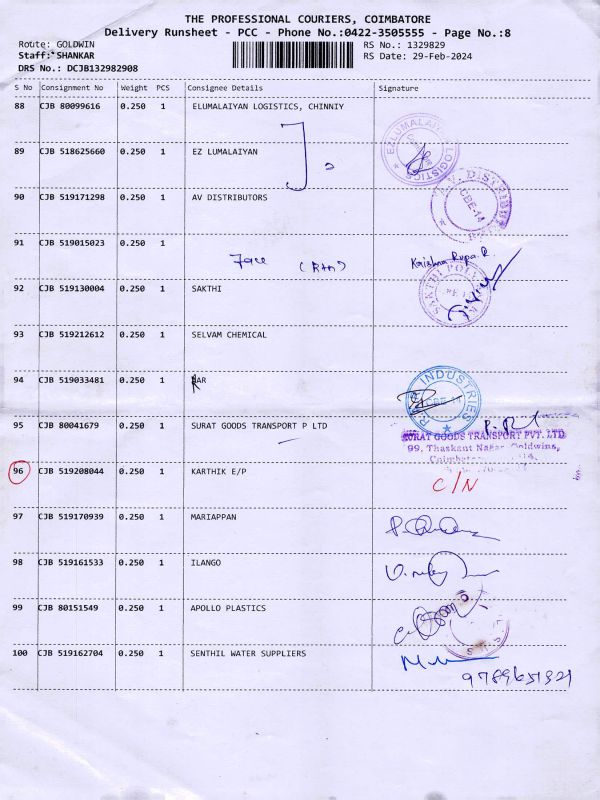 THE PROFESSIONAL COURIERS, COIMBATORE
Delivery Runsheet - PCC - Phone No.:0422-3505555 - Page No.:8
Route: GOLDWIN
Staff: SHANKAR
DRS No.: DCJB132982908
RS No.: 1329829
RS Date: 29-Feb-2024
S No Consignment No Weight PCS Consignee Details Signature
88 CJB 80099616 0.250 1 ELUMALAIYAN LOGISTICS, CHINNIY
89 CJB 518625660 0.250 1 EZ LUMALAIYAN
EZLUMALAI LOGISTICS
90 CJB 519171298 0.250 1 AV DISTRIBUTORS
CBE-14
91 CJB 519015023 0.250 1
Krishna Rupa. R.
92 CJB 519130004 0.250 1 SAKTHI
SAKTHI
93 CJB 519212612 0.250 1 SELVAM CHEMICAL
94 CJB 519033481 0.250 1 AR
INDUSTRIES
95 CJB 80041679 0.250 1 SURAT GOODS TRANSPORT P LTD
SURAT GOODS TRANSPORT PVT. LTD
99, Thaskant Nagar, Goldwins,
96 CJB 519208044 0.250 1 KARTHIK E/P
C/N
97 CJB 519170939 0.250 1 MARIAPPAN
98 CJB 519161533 0.250 1 ILANGO
99 CJB 80151549 0.250 1 APOLLO PLASTICS
100 CJB 519162704 0.250 1 SENTHIL WATER SUPPLIERS
9789651321